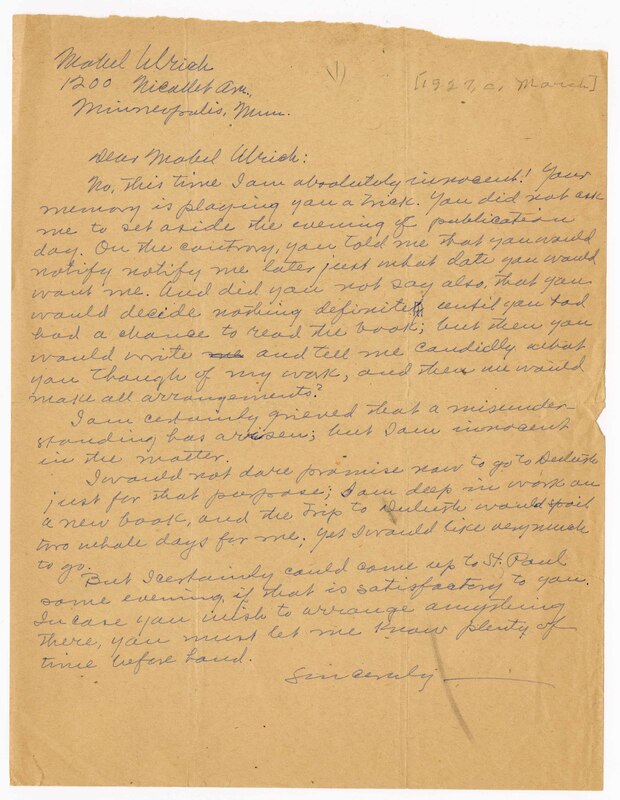 Mabel Ulrich
1200 Nicollet Av.
Minneapolis, Minn.
[1927, c. March]
Dear Mabel Ulrich:
No, this time I am absolutely innocent! Your
memory is playing you a trick. You did not ask
me to set aside the evening of publication
day. On the contrary, you told me that you would
notify notify me later just what date you would
want me. And did you not say also, that you
would decide nothing definite until you had
had a chance to read the book; but then you
would write me and tell me candidly what
you though of my work, and then we would
make all arrangements?
I am certainly grieved that a misunder-
standing has arisen; but I am innocent
in the matter.
I would not dare promise now to go to Duluth
just for that purpose; I am deep in work on
a new book, and the trip to Duluth would spoil
two whole days for me; yet I would like very much
to go.
But I certainly could come up to St. Paul
some evening if that is satisfactory to you.
In case you wish to arrange anything
there, you must let me know plenty of
time before hand.
Sincerely